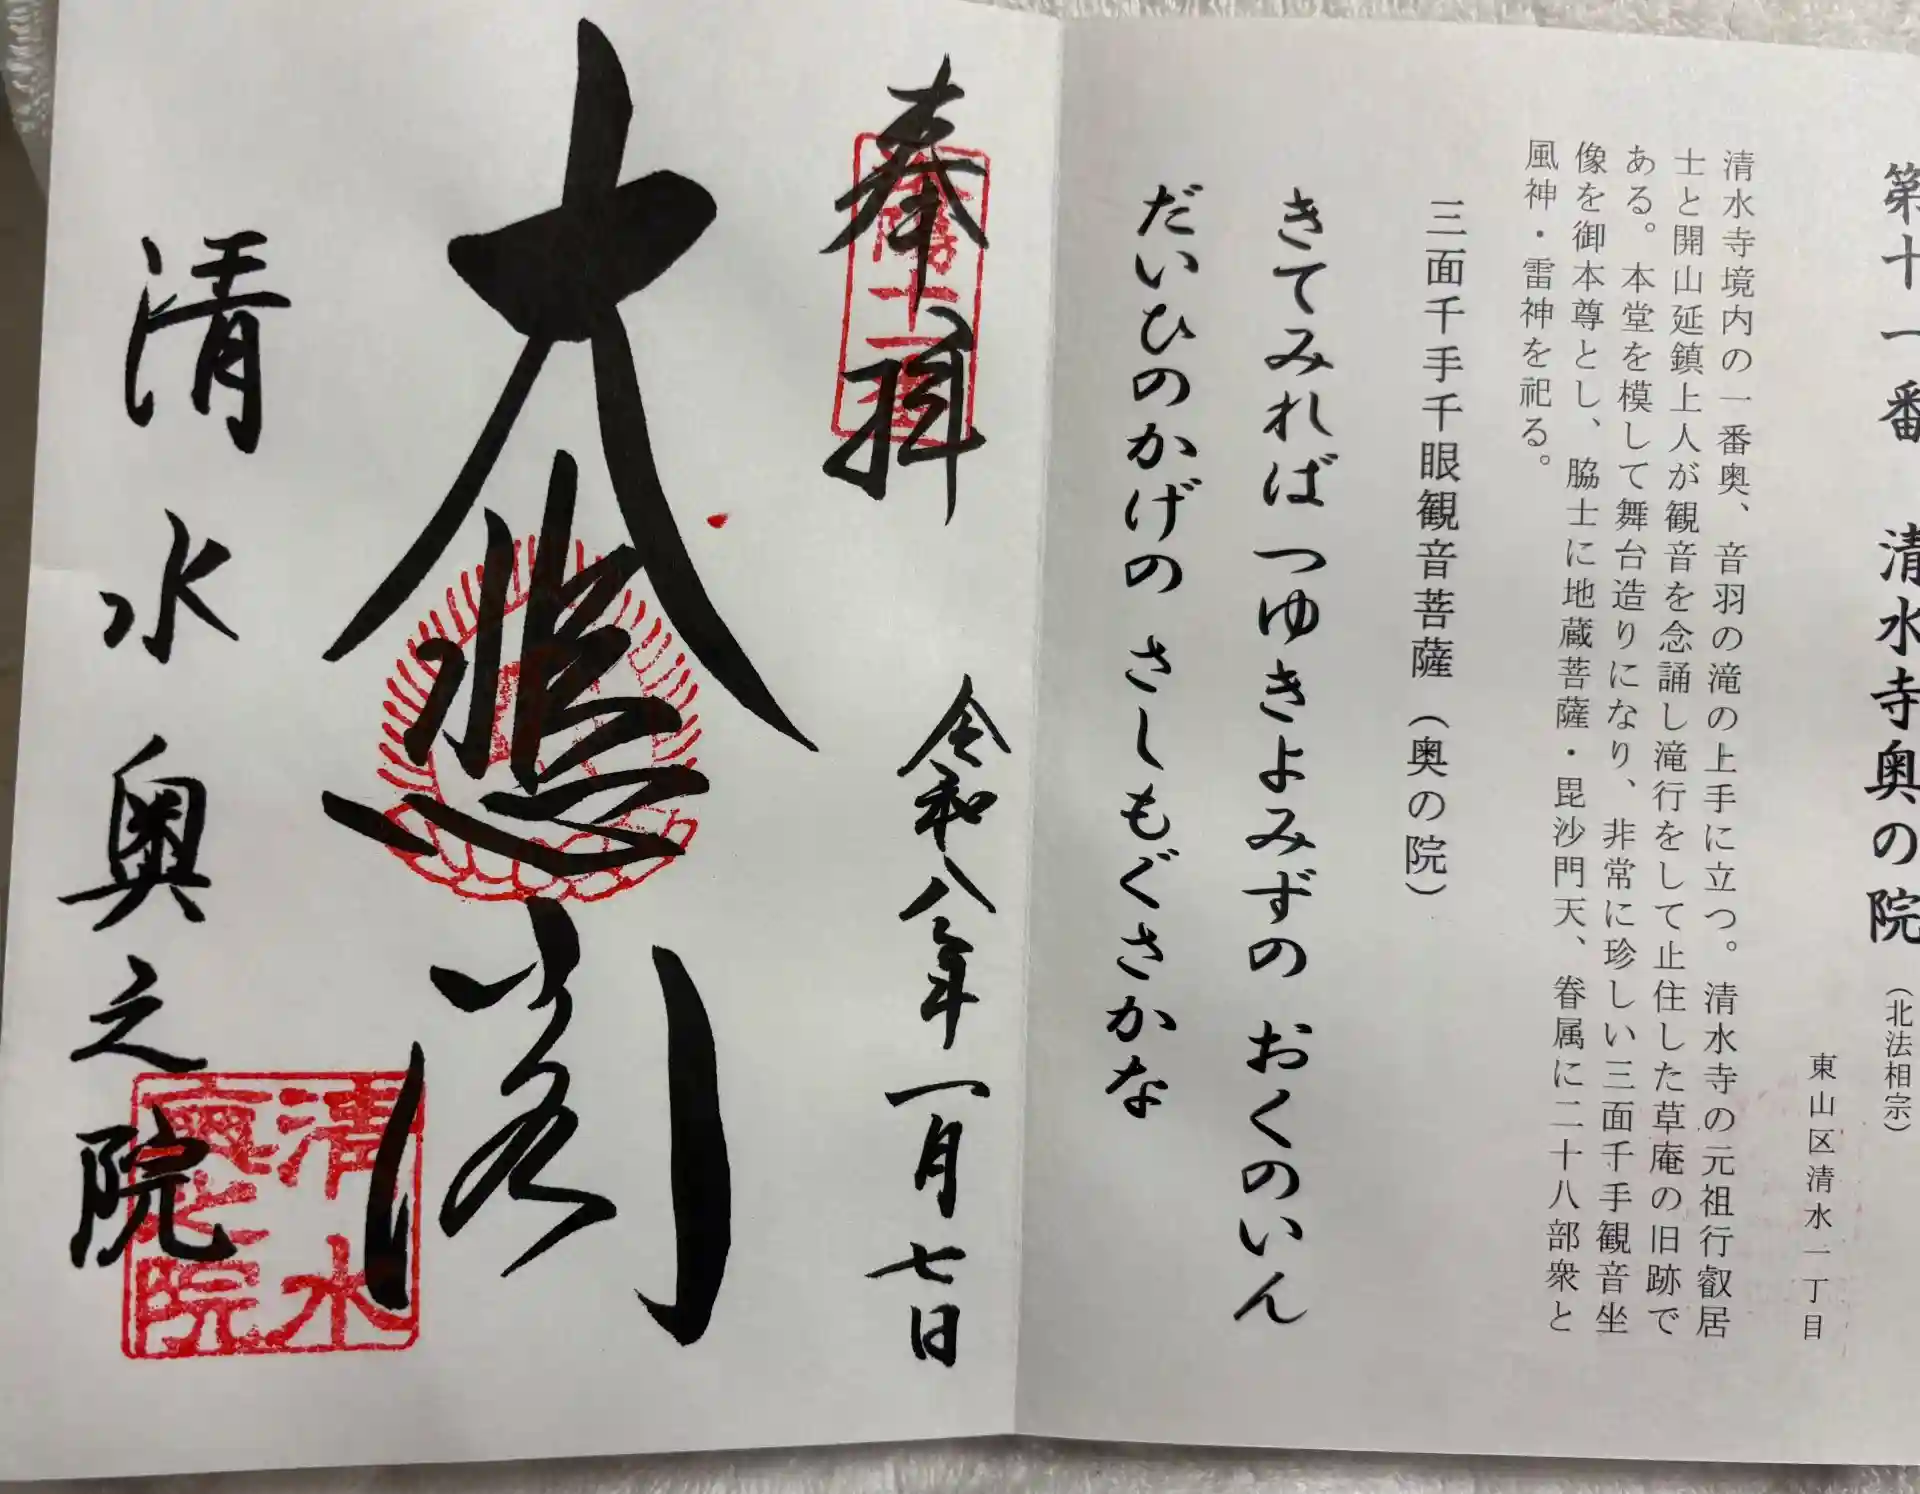 第十一番 清水寺奥の院(北法相宗)
東山区清水一丁目
清水寺境内の一番奥、音羽の滝の上手に立つ。清水寺の元祖行叡居
士と開山延鎮上人が観音を念誦し滝行をして止住した草庵の旧跡で
ある。本堂を模して舞台造りになり、非常に珍しい三面千手観音坐
像を御本尊とし、脇士に地蔵菩薩・毘沙門天、眷属に二十八部衆と
風神・雷神を祀る。
三面千手千眼観音菩薩(奥の院)
きてみればつゆきよみずの おくのいん
だいひのかげの さしもぐさかな
奉拝
令和八年一月七日
大悲閣
清水奥之院
清水
奥之院